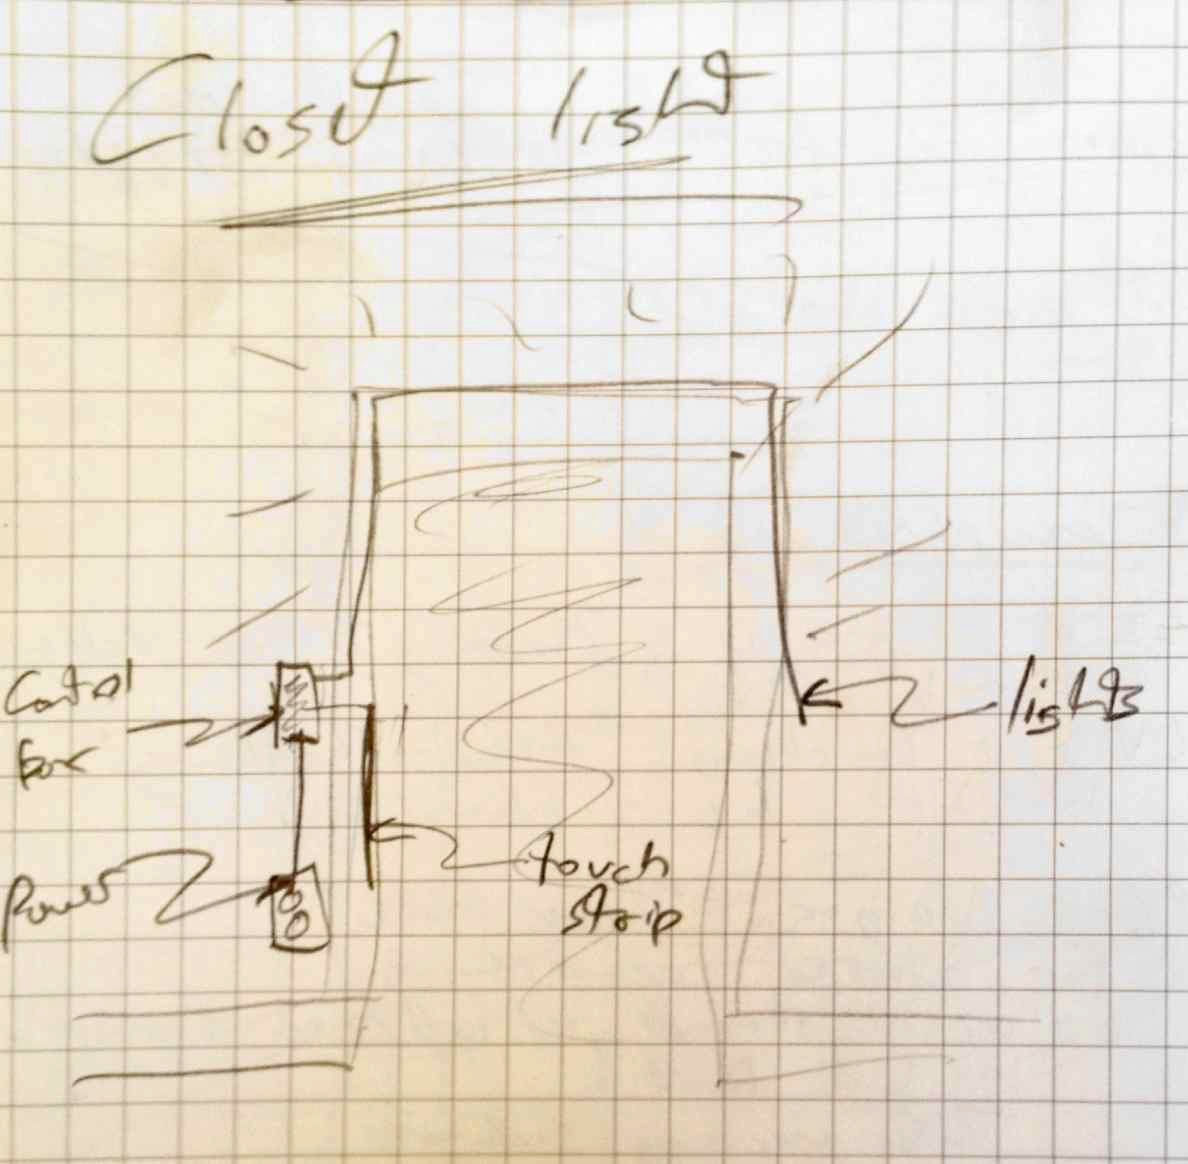 Closet light
Control
box
lights
touch
strip
Power